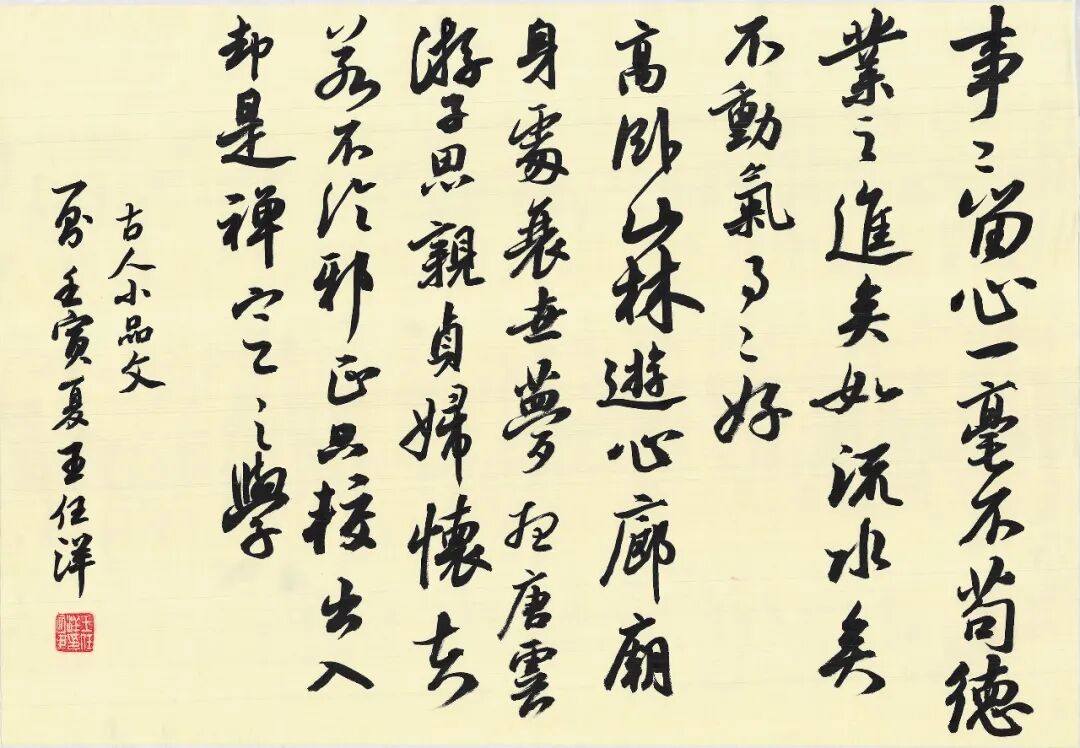 事〻留心一毫不苟德
業之進矣如流水矣
不動氣事〻好
高卧山林遊心廊廟
身處衰世夢想唐虞
游子思親貞婦懷夫
若不論邪正只較出入
却是禪定之學
古人小品文
壬寅夏王任洋